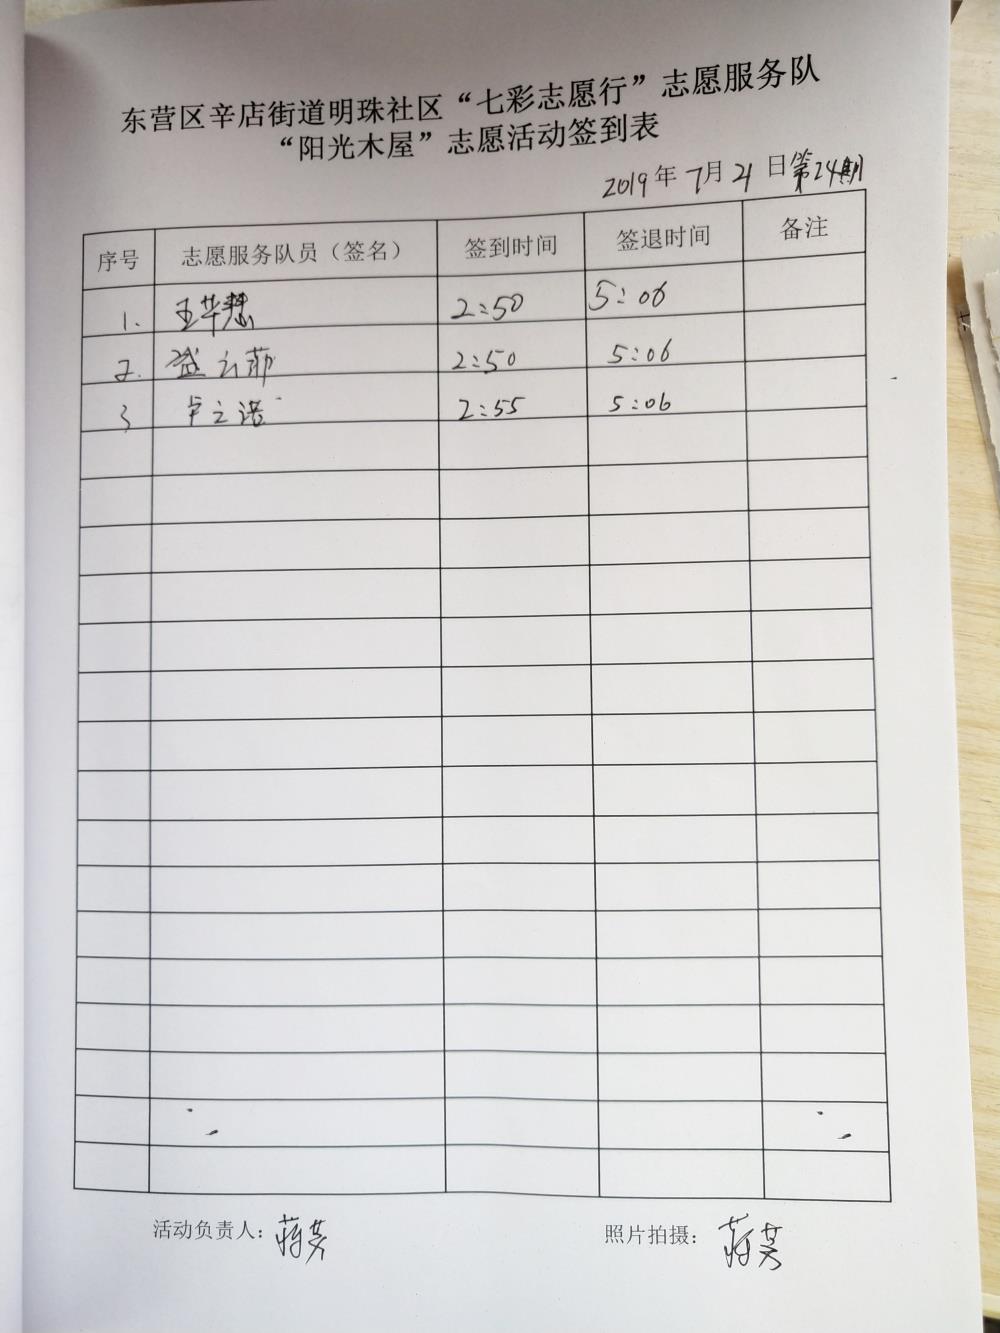 东营区辛店街道明珠社区“七彩志愿行”志愿服务队
“阳光木屋”志愿活动签到表
2019年7月21日第24期
序号 志愿服务队员（签名） 签到时间 签退时间 备注
1. 王华慧 2:50 5:06
2. 盛云茹 2:50 5:06
3 卢立诺 2:55 5:06
活动负责人： 照片拍摄：